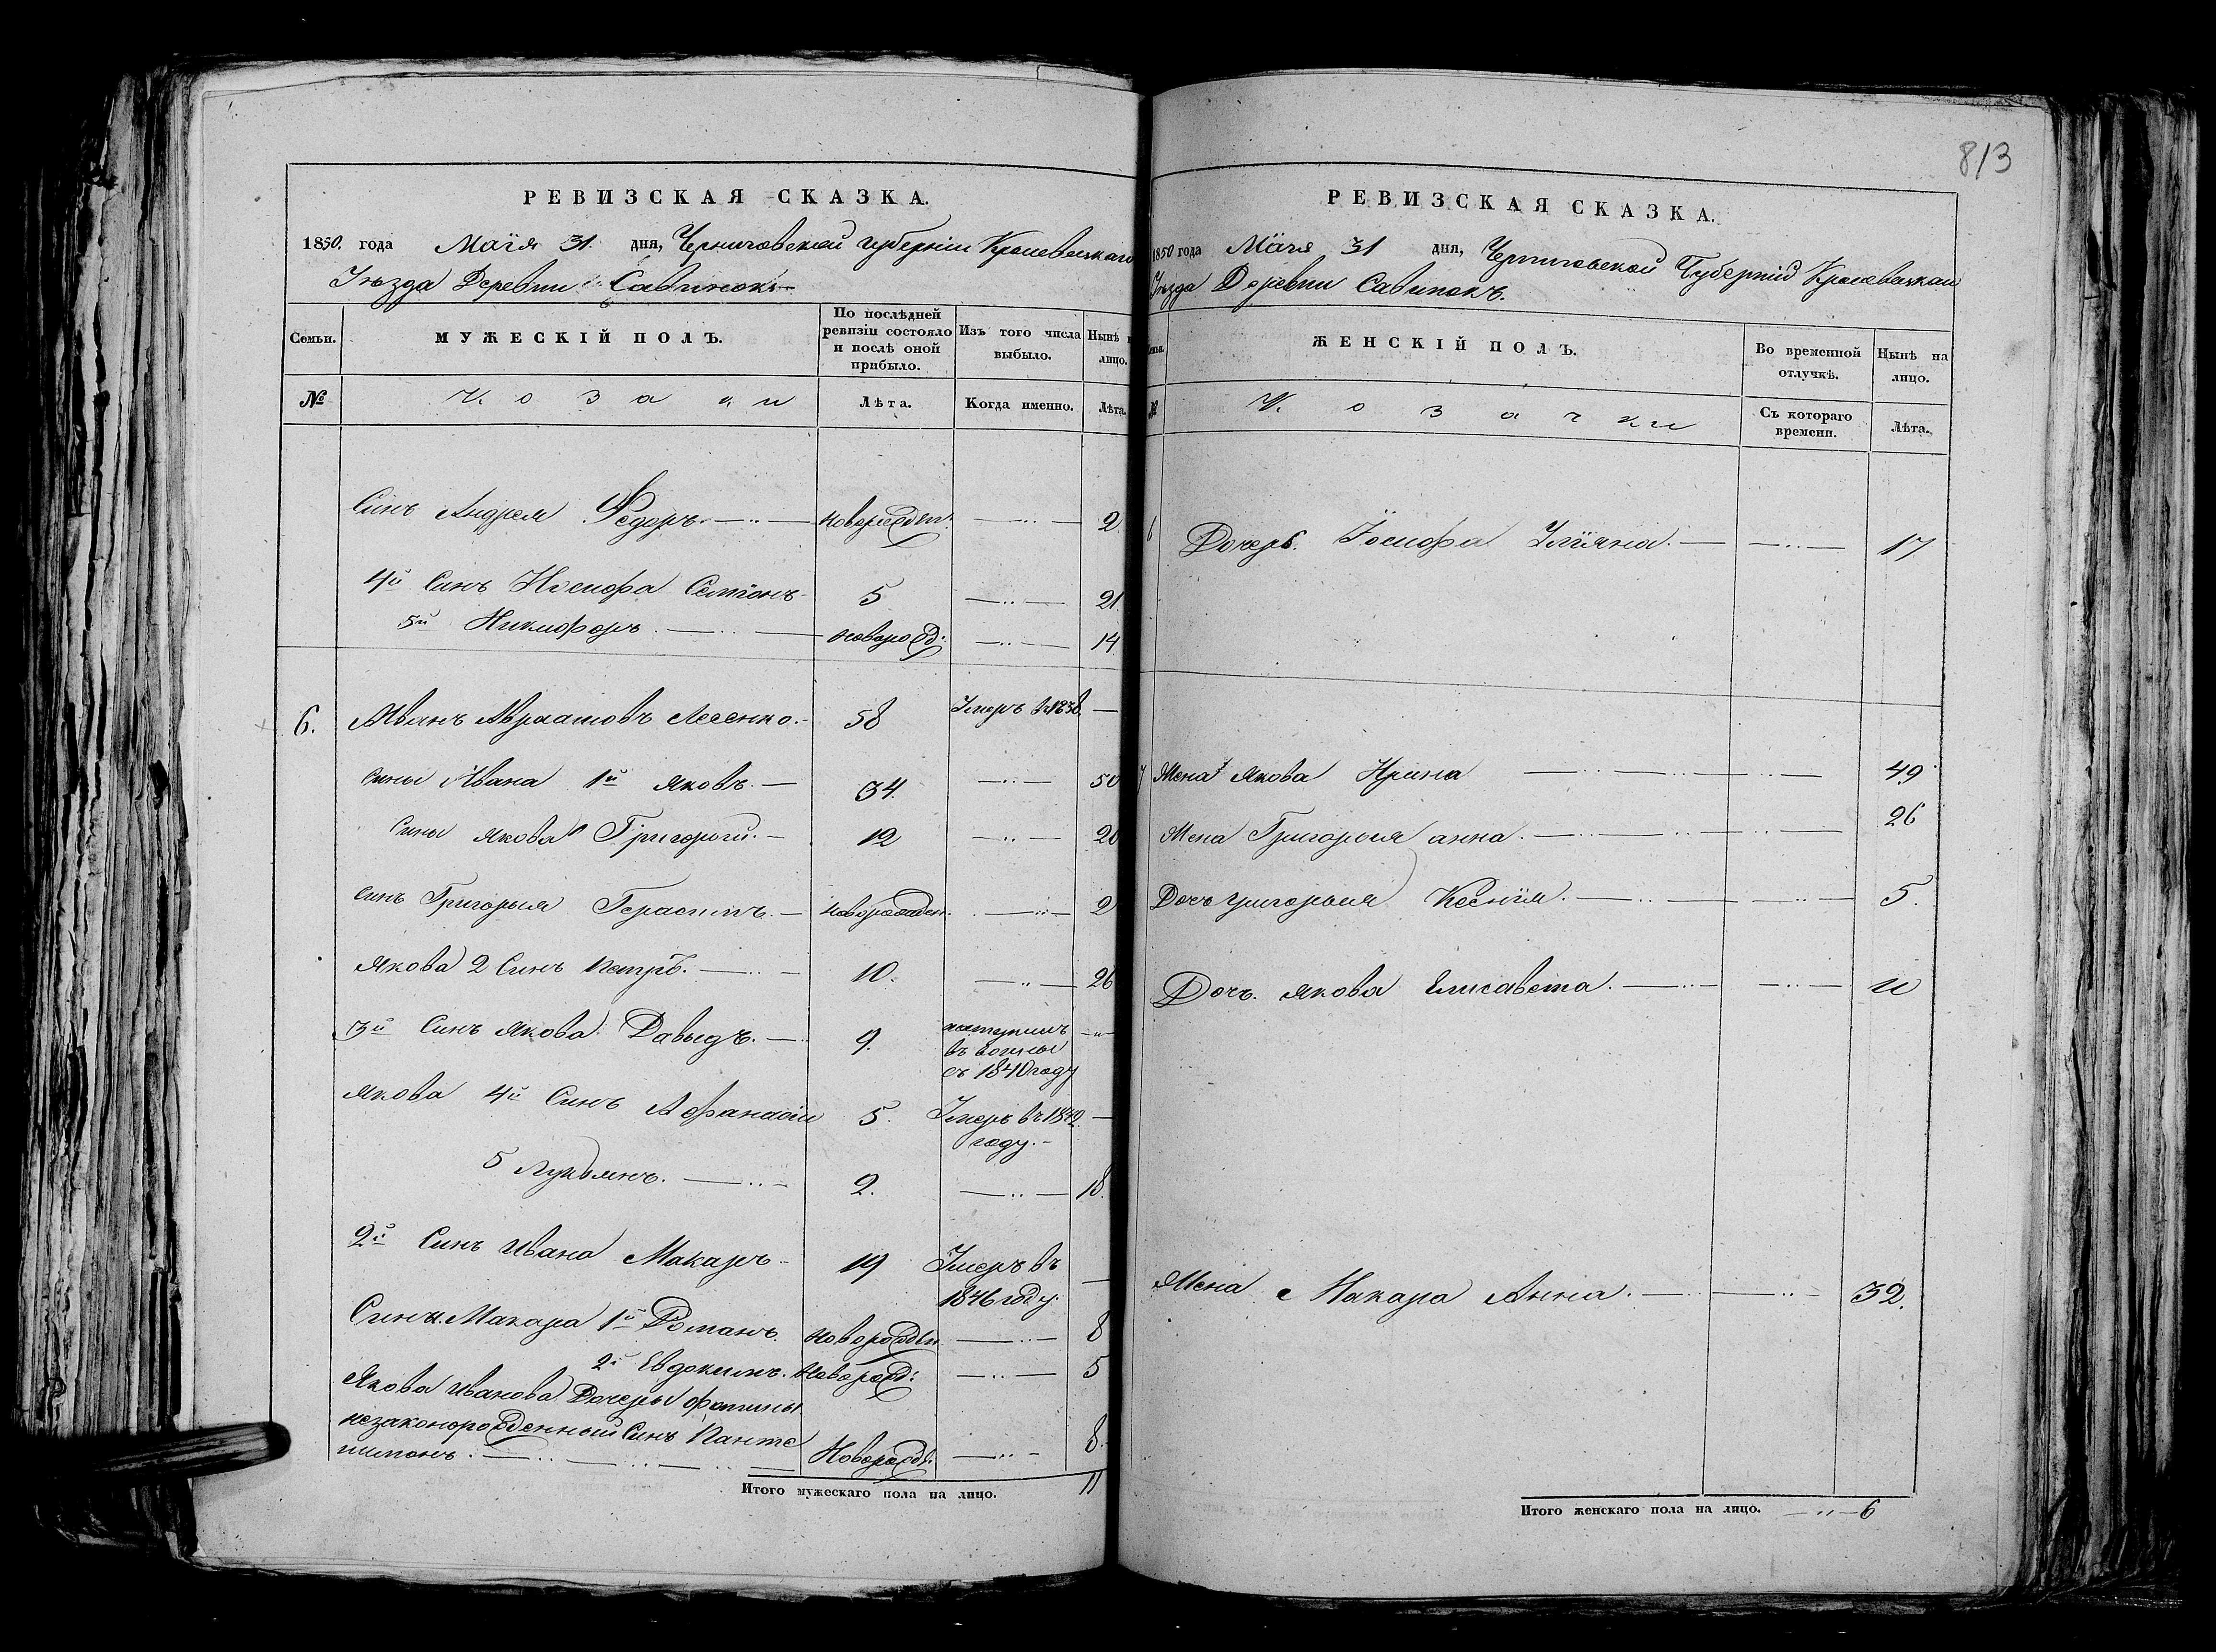 813
РЕВИЗСКАЯ СКАЗКА.
1850. года Маїя 31. дня, Черниговской губернїи Кролевецкаго
Уѣзда Деревни Савинокъ
Семьи. МУЖЕСКІЙ ПОЛЪ. По послѣдней ревизіи состояло и послѣ оной прибыло. Изъ того числа выбыло. Нынѣ лицо.
№ Козаки Лѣта. Когда именно. Лѣта.
Синъ Андрея Федоръ. новорожден. 2
4й Синъ Иосифа Семїонъ 5 21.
5й Никифоръ. новорожд: 14.
6. Иванъ Авраамовъ Лесенко. 58 Умеръ в 1838. —
Сины Ивана 1й Яковъ. 34. 50
Сины Якова Григорий. 12 28
Синъ Григорыя Герасимъ. новорожден. 2
Якова 2 Синъ Петръ. 10. 26
3й Синъ Якова Давыдъ. 9. въ 1840 году
Якова 4й Синъ Афанасїй 5. Умеръ въ 1842. году.
5 Лукьянъ. 2. 18.
2й Синъ Ивана Макаръ 19 Умеръ въ 1846 году.
Сины Макара 1й Романъ. новорожден 8
2й Евдокимъ. Новорожд: 5
Якова Иванова Дочери фотины
незаконорожденный Синъ Панте
лимонъ. Новорожд. 8.
Итого мужескаго пола на лицо. 11
РЕВИЗСКАЯ СКАЗКА.
1850 года Маїя 31 дня, Черниговской Губернїи Кролевецкаго
Уѣзда Деревни Савинокъ.
Семьи. ЖЕНСКІЙ ПОЛЪ. Во временной отлучкѣ. Нынѣ на лицо.
№ Козачки Съ котораго времени. Лѣта.
Дочерь Іосифа Улїяна. 17
Жена Якова Ирина 49
Жена Григорыя анна. 26
Дочь григорыя Ксенїя. 5.
Дочь. Якова Елисавета. 11
Жена Макара Анна. 32.
Итого женскаго пола на лицо. 6